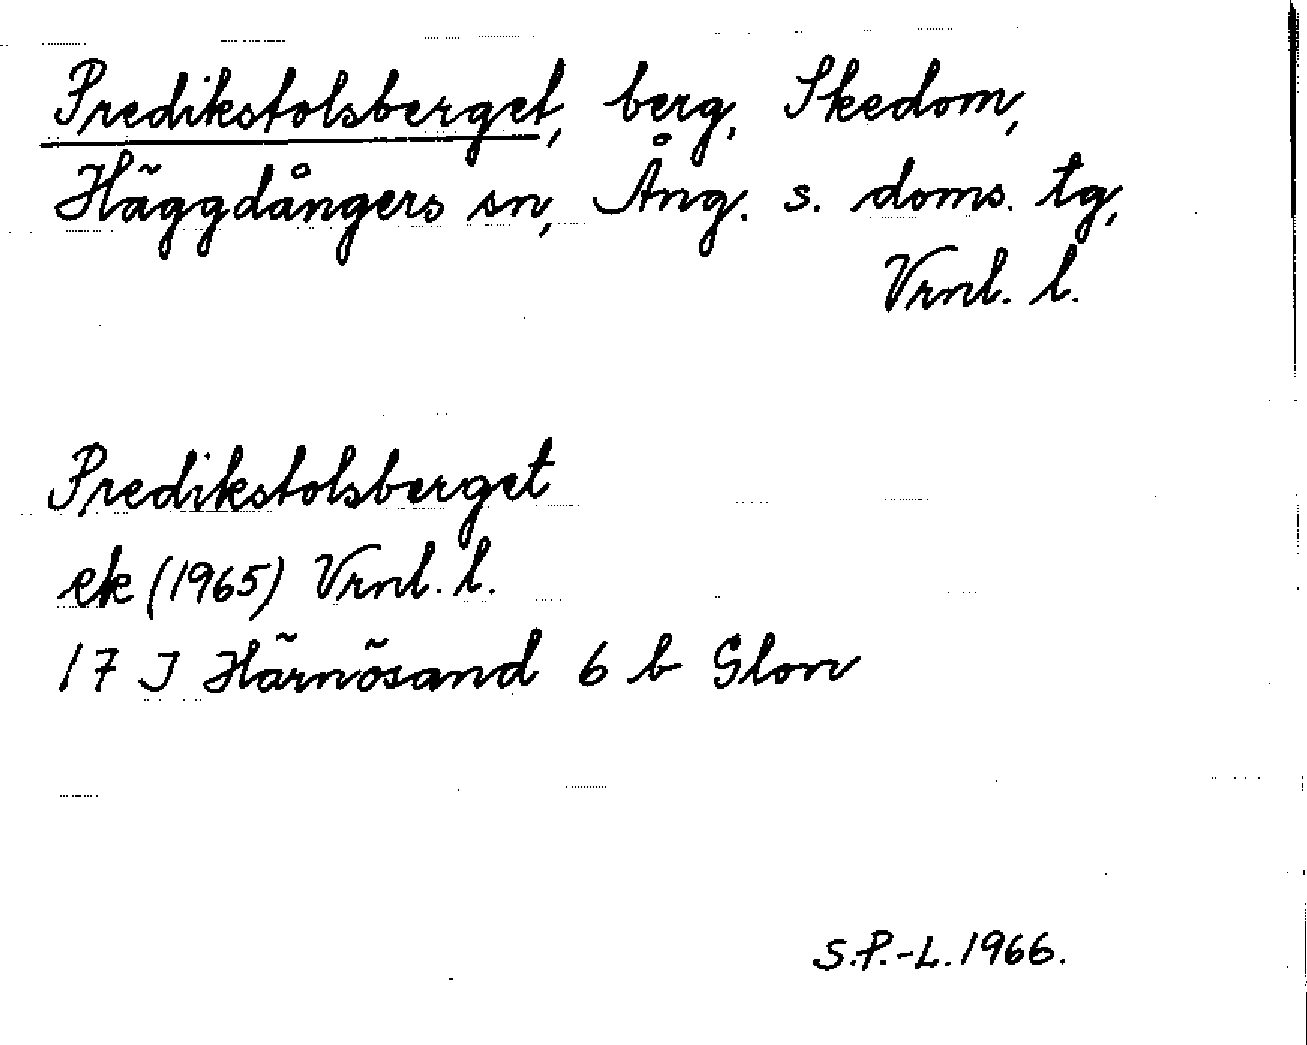 Predikstolsberget, berg, Skedom,
Häggdångers sn, Ång. s. doms. tg,
Vrnl. l.
Predikstolsberget
ek (1965) Vrnl. l.
17 J Härnösand 6 b Slon
S.P.-L. 1966.